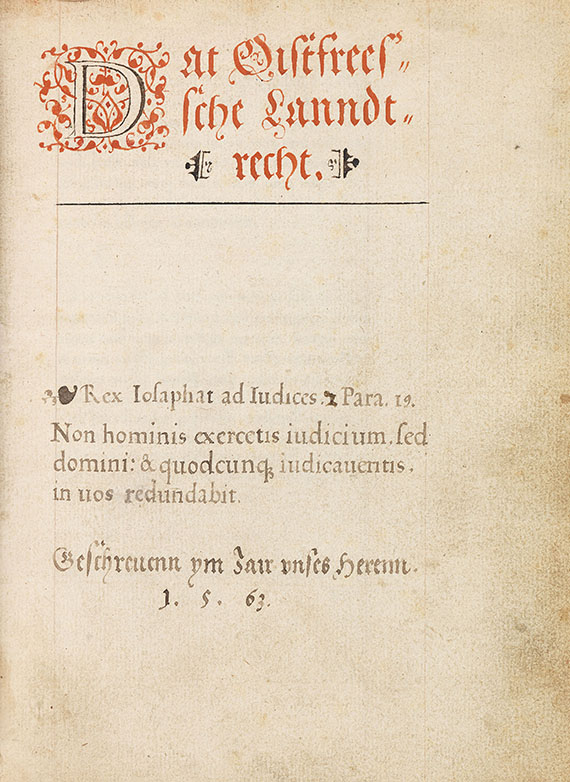 Dat Oistfrees⸗
sche Lanndt⸗
recht.
Rex Iosaphat ad Iudices. 2 Para. 19.
Non hominis exercetis iudicium, sed
domini: & quodcunq; iudicaueritis,
in uos redundabit.
Geschreuenn ym Jair vnses Herenn.
1. 5. 63.